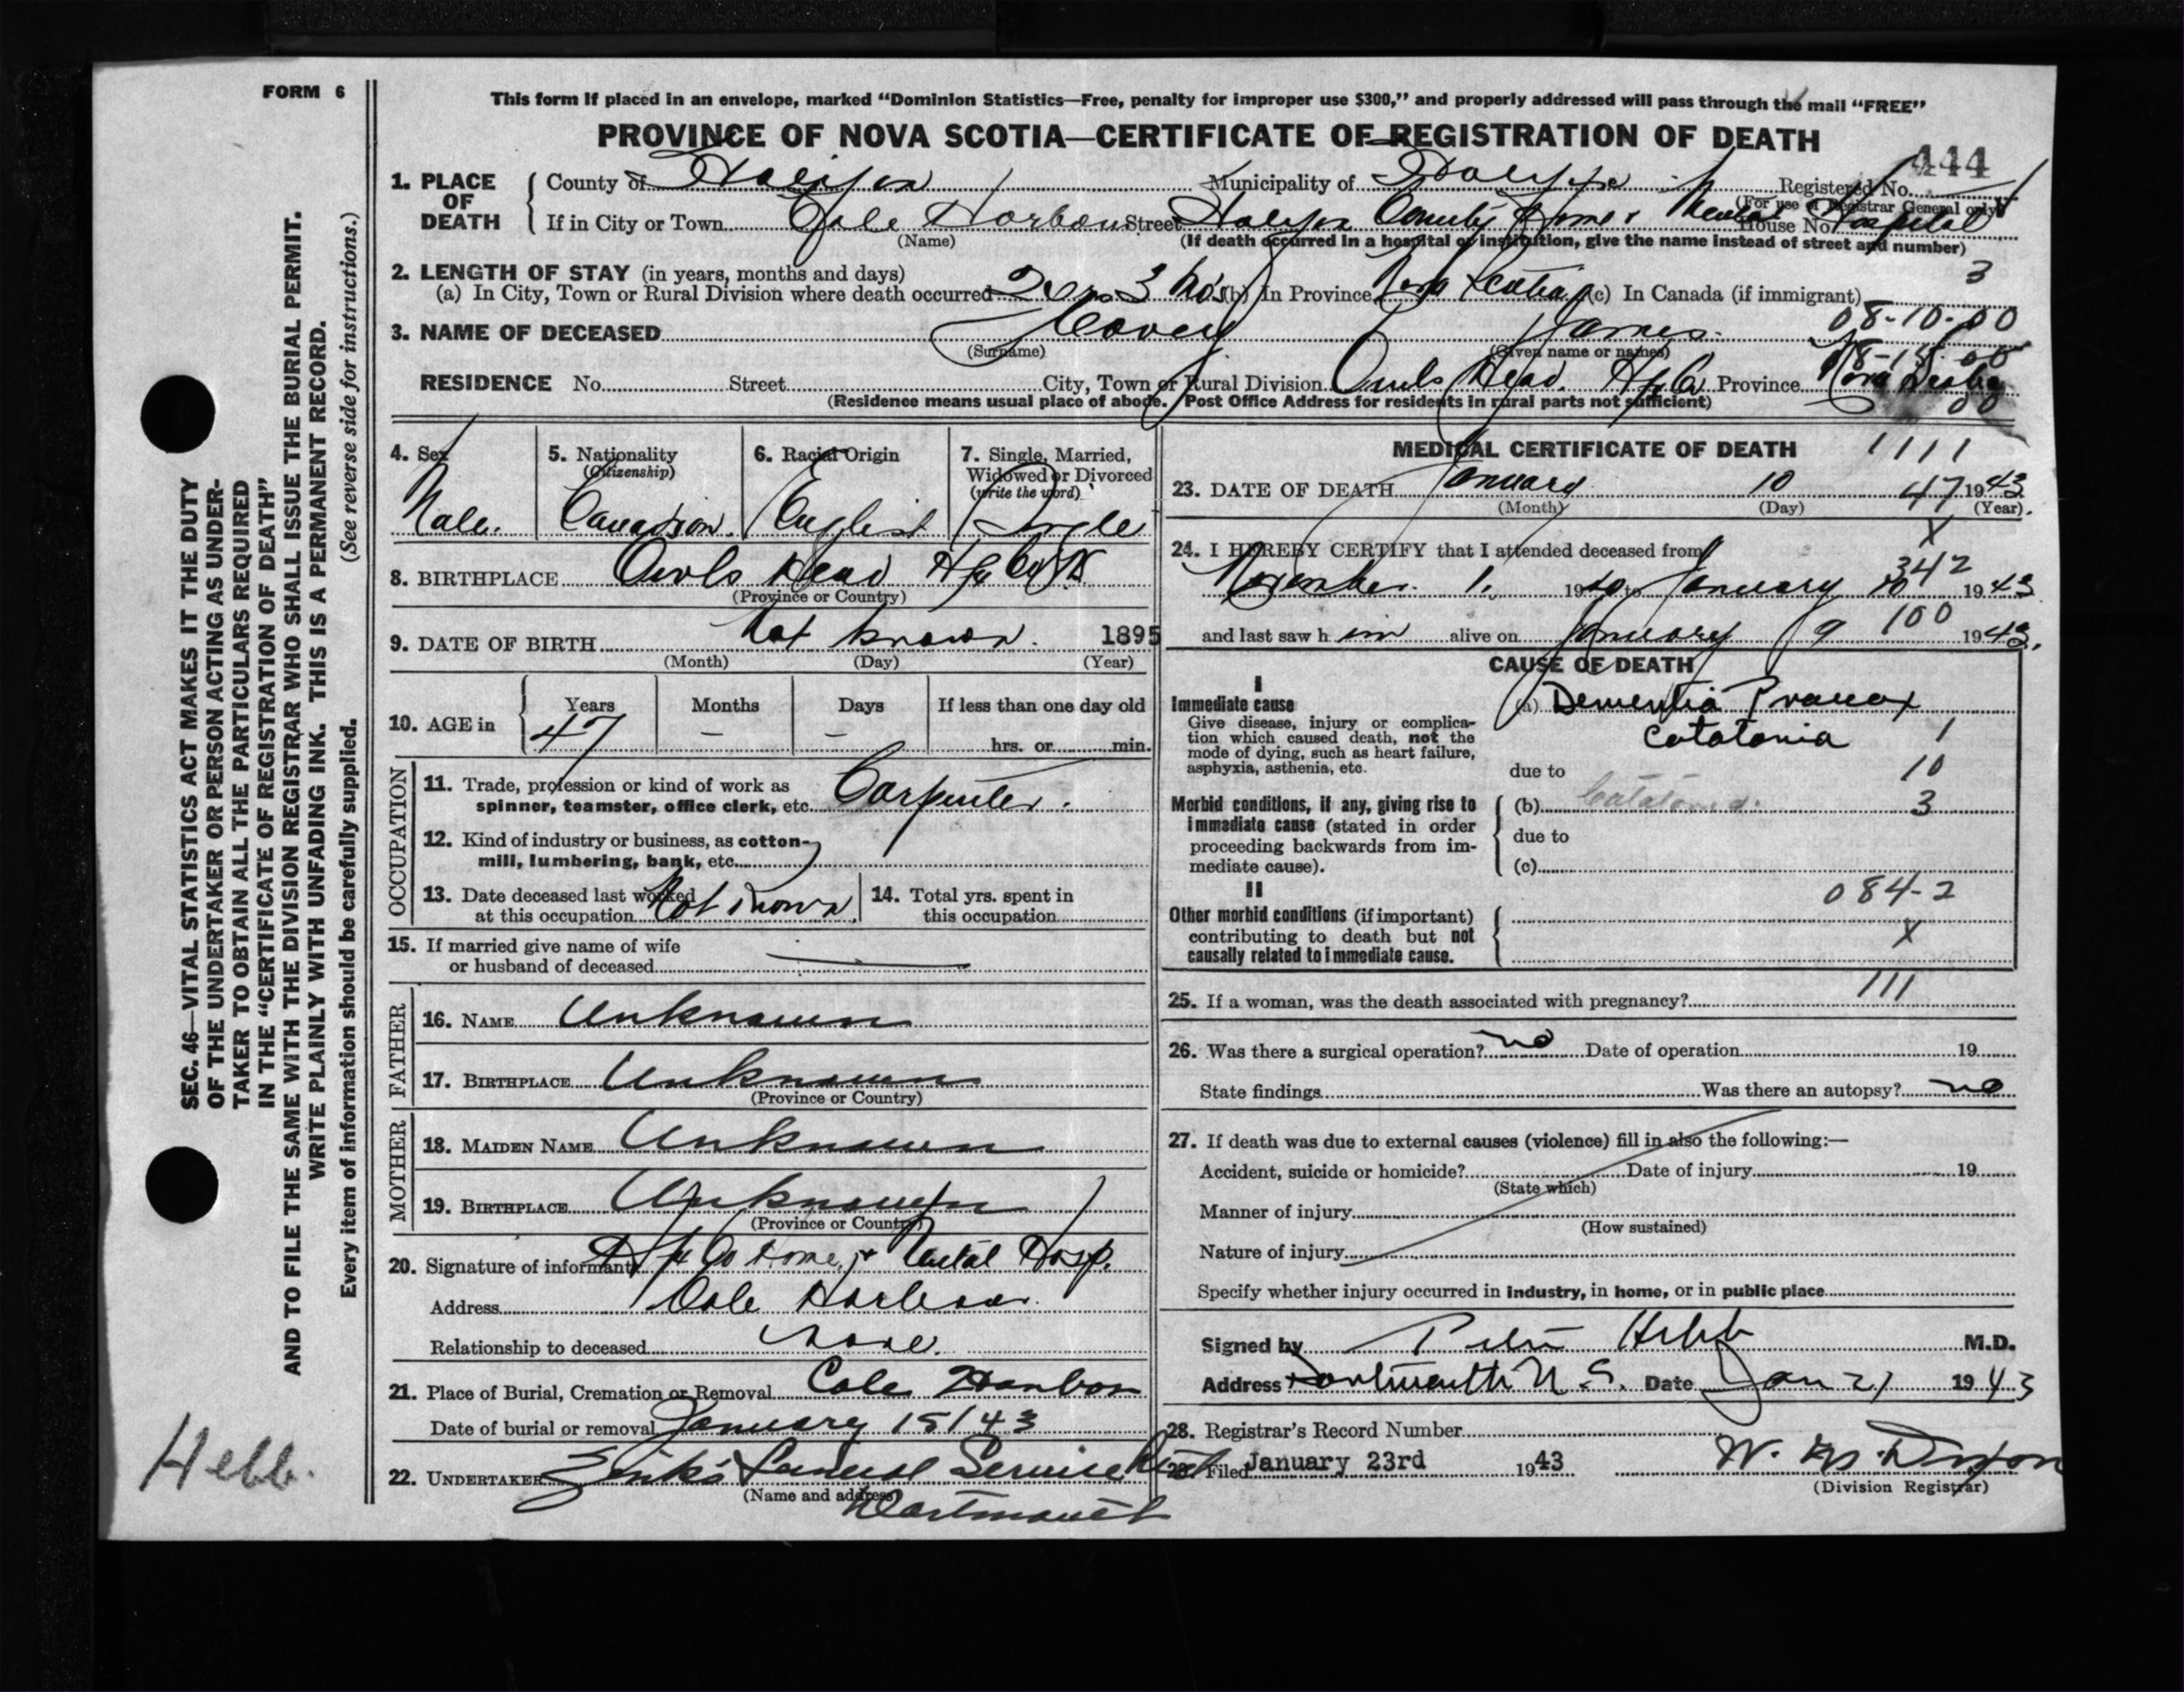 FORM 6
This form if placed in an envelope, marked “Dominion Statistics—Free, penalty for improper use $300,” and properly addressed will pass through the mail “FREE”
PROVINCE OF NOVA SCOTIA—CERTIFICATE OF REGISTRATION OF DEATH
444
1. PLACE OF DEATH
County of Halifax Municipality of Halifax Registered No.
(For use of Registrar General only)
If in City or Town Cole Harbour Street Halifax County Home & Mental Hospital House No.
(Name) (If death occurred in a hospital or institution, give the name instead of street and number)
2. LENGTH OF STAY (in years, months and days) 3
(a) In City, Town or Rural Division where death occurred 2 yrs 3 mos (b) In Province Nova Scotia (c) In Canada (if immigrant)
08-10-00
3. NAME OF DECEASED Covey James
(Surname) (Given name or names)
RESIDENCE No. Street City, Town or Rural Division Owls Head. Hfx Co Province Nova Scotia
(Residence means usual place of abode. Post Office Address for residents in rural parts not sufficient)
00
4. Sex Male.
5. Nationality (Citizenship) Canadian.
6. Racial Origin English
7. Single, Married, Widowed or Divorced (write the word) Single
8. BIRTHPLACE Owls Head Hfx Co NS
(Province or Country)
9. DATE OF BIRTH Not known. 1895
(Month) (Day) (Year)
10. AGE in Years Months Days If less than one day old
47 – – hrs. or min.
OCCUPATION
11. Trade, profession or kind of work as spinner, teamster, office clerk, etc. Carpenter.
12. Kind of industry or business, as cotton-mill, lumbering, bank, etc.
13. Date deceased last worked at this occupation Not Known.
14. Total yrs. spent in this occupation
15. If married give name of wife or husband of deceased
FATHER
16. NAME Unknown
17. BIRTHPLACE Unknown
(Province or Country)
MOTHER
18. MAIDEN NAME Unknown
19. BIRTHPLACE Unknown
(Province or Country)
20. Signature of informant Hfx Co Home & Mental Hosp.
Address Cole Harbour.
Relationship to deceased None.
21. Place of Burial, Cremation or Removal Cole Harbor
Date of burial or removal January 15/43
22. UNDERTAKER Zink's Funeral Service
(Name and address)
Dartmouth
MEDICAL CERTIFICATE OF DEATH 1111
23. DATE OF DEATH January 10 47 1943
(Month) (Day) (Year).
X
24. I HEREBY CERTIFY that I attended deceased from
342
November 1. 1940 to January 10 1943
100
and last saw him alive on January 9 1943.
CAUSE OF DEATH
I
Immediate cause
Give disease, injury or complication which caused death, not the mode of dying, such as heart failure, asphyxia, asthenia, etc.
(a) Dementia Praecox
Catatonia 1
due to 10
Morbid conditions, if any, giving rise to immediate cause (stated in order proceeding backwards from immediate cause).
(b) Catatonia. 3
due to
(c)
II
084-2
Other morbid conditions (if important) contributing to death but not causally related to immediate cause.
X
111
25. If a woman, was the death associated with pregnancy?
26. Was there a surgical operation? no Date of operation 19
State findings Was there an autopsy? no
27. If death was due to external causes (violence) fill in also the following:—
Accident, suicide or homicide? Date of injury 19
(State which)
Manner of injury
(How sustained)
Nature of injury
Specify whether injury occurred in industry, in home, or in public place
Signed by Peter Hebb M.D.
Address Dartmouth N.S. Date Jan 21 1943
28. Registrar's Record Number
29. Filed January 23rd 1943
(Division Registrar)
SEC. 46—VITAL STATISTICS ACT MAKES IT THE DUTY
OF THE UNDERTAKER OR PERSON ACTING AS UNDER-
TAKER TO OBTAIN ALL THE PARTICULARS REQUIRED
IN THE “CERTIFICATE OF REGISTRATION OF DEATH”
AND TO FILE THE SAME WITH THE DIVISION REGISTRAR WHO SHALL ISSUE THE BURIAL PERMIT.
WRITE PLAINLY WITH UNFADING INK. THIS IS A PERMANENT RECORD.
Every item of information should be carefully supplied. (See reverse side for instructions.)
Hebb.